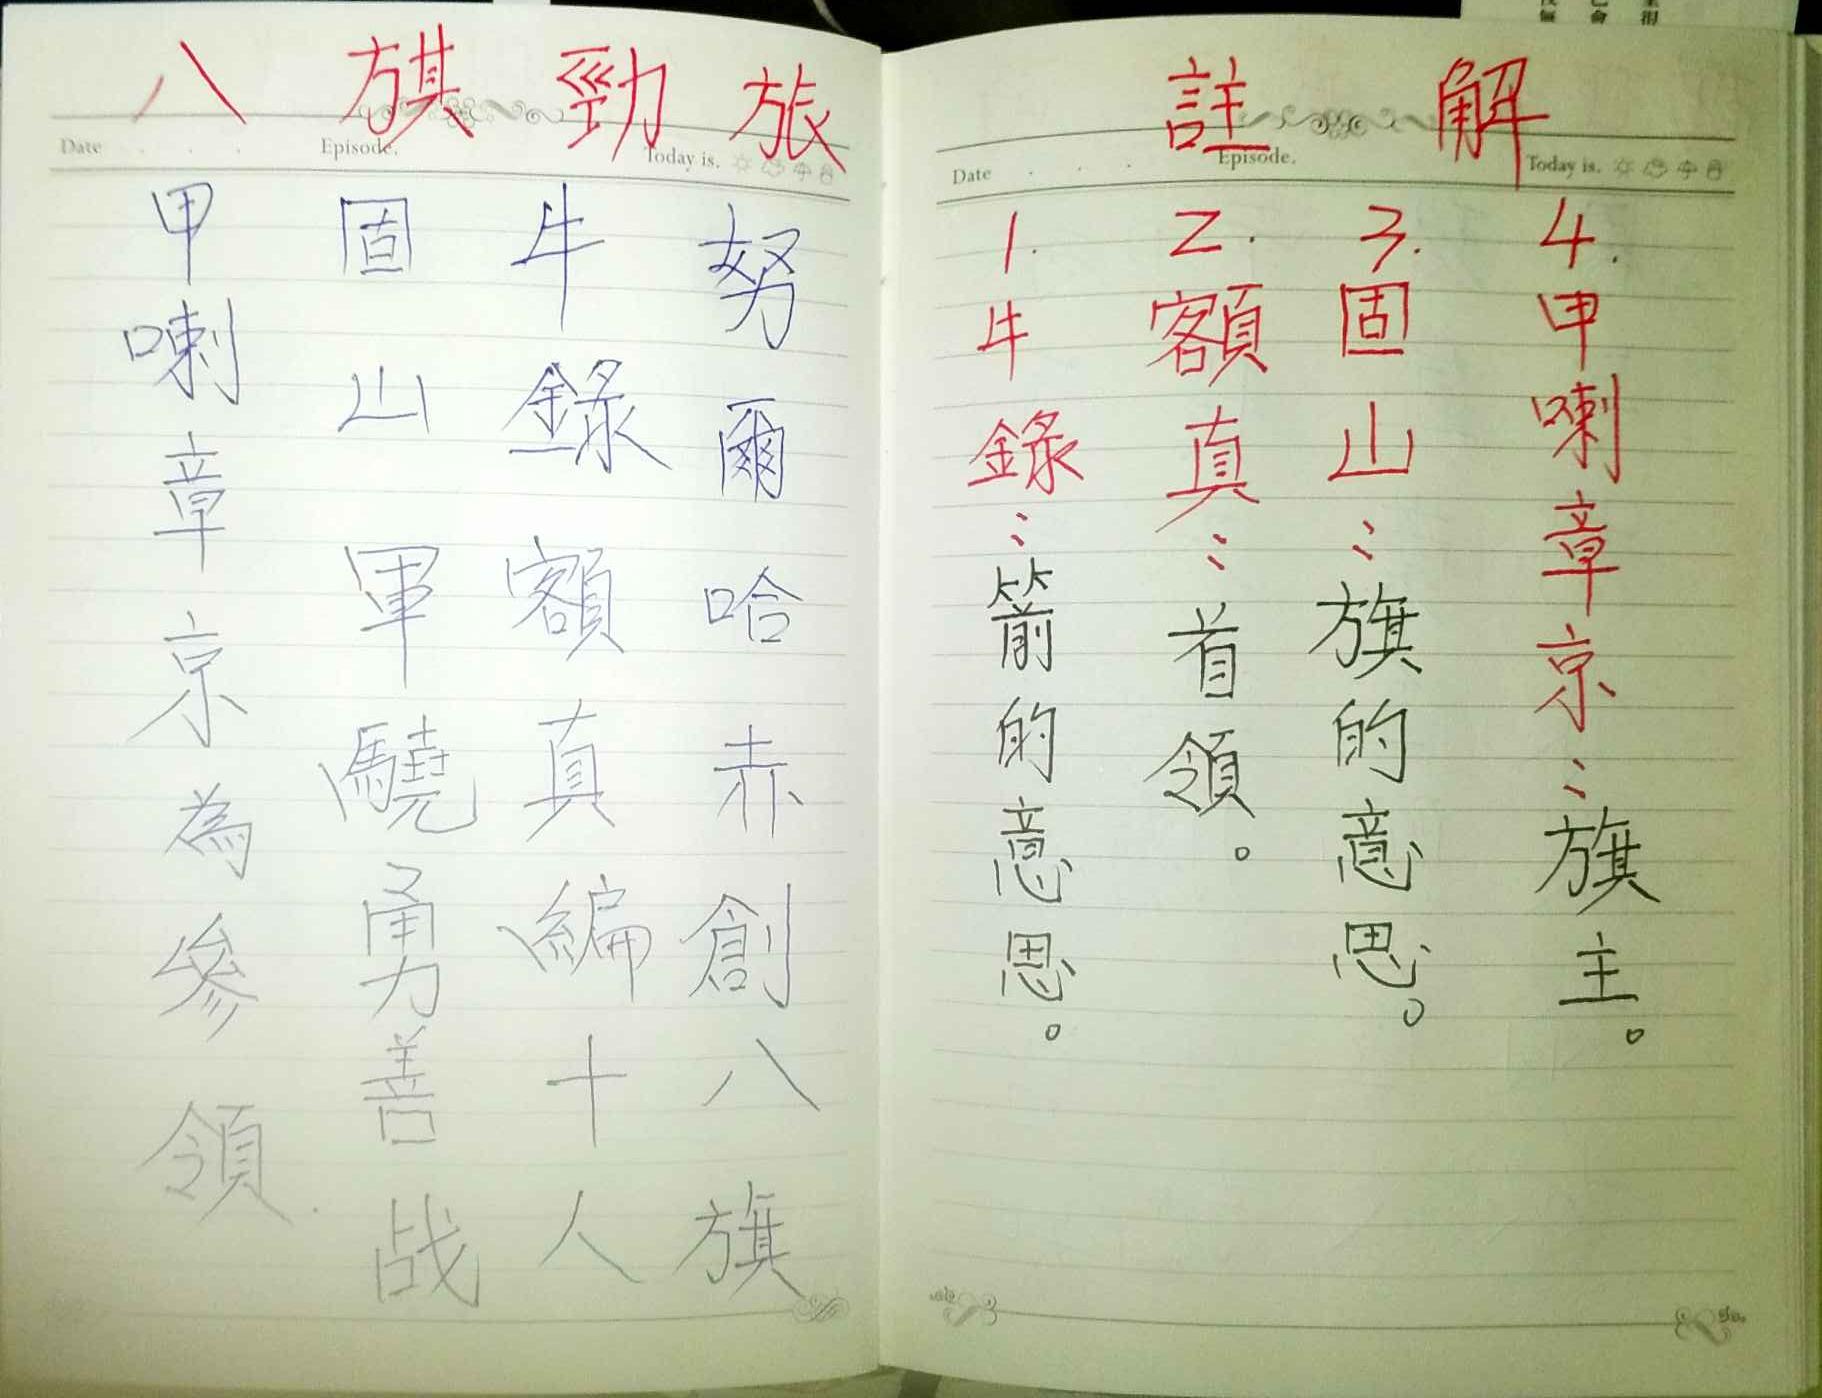 八旗勁旅
Date Episode. Today is.
努爾哈赤創八旗
牛錄額真編十人
固山軍驍勇善战
甲喇章京為參領.
註解
Date Episode. Today is.
1.牛錄:箭的意思。
2.額真:首領。
3.固山:旗的意思。
4.甲喇章京:旗主。